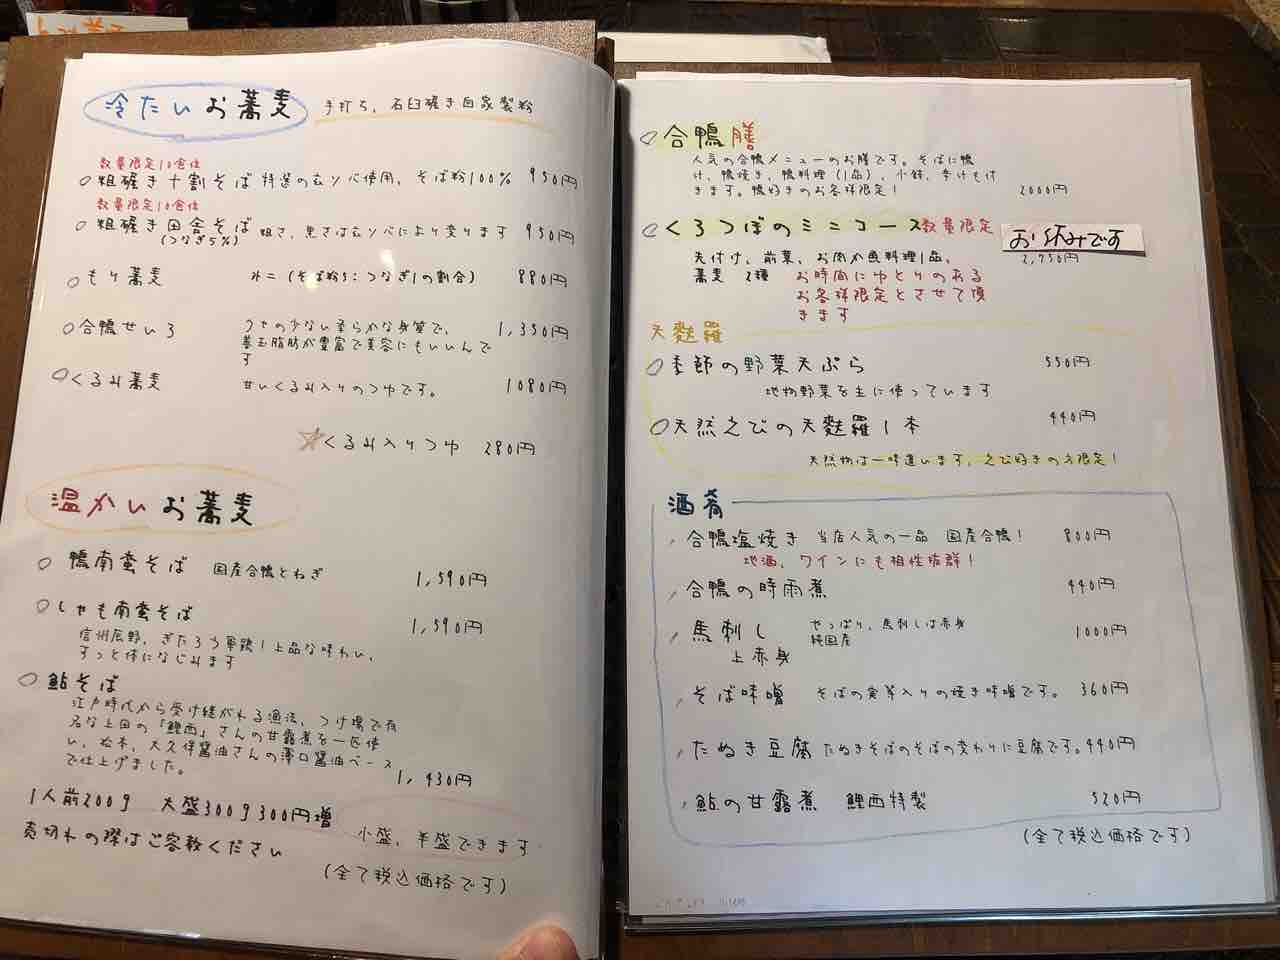 冷たいお蕎麦 手打ち、石臼碾き自家製粉
数量限定10食位
粗碾き十割そば 特選の玄ソバ使用、そば粉100% 950円
数量限定10食位
粗碾き田舎そば 粗さ、黒さは玄ソバにより変ります 950円
(つなぎ5%)
もり蕎麦 外二(そば粉5:つなぎ1の割合) 880円
合鴨せいろ クセの少ない柔らかな身質で、 1,350円
善玉脂肪が豊富で美容にもいいんで
す
くるみ蕎麦 甘いくるみ入りのつゆです。 1080円
☆くるみ入りつゆ 280円
温かいお蕎麦
鴨南蛮そば 国産合鴨とねぎ 1,590円
しゃも南蛮そば 1,590円
信州辰野、ぎたろう軍鶏!上品な味わい、
すっと体になじみます
鮎そば
江戸時代から受け継がれる漁法、つけ場で有
名な上田の「鯉西」さんの甘露煮を一匹使
い、松本、大久保醤油さんの薄口醤油ベース
で仕上げました。 1,430円
1人前200g 大盛300g300円増
小盛、半盛できます
売切れの際はご容赦ください
(全て税込価格です)
合鴨膳
人気の合鴨メニューのお膳です。そばに鴨
汁、鴨焼き、鴨料理(1品)、小鉢、香け も付
きます。鴨好きのお客様限定! 2000円
くろつぼのミニコース数量限定 お休みです
先付け、前菜、お肉か魚料理1品、 2,750円
蕎麦 2種 お時間にゆとりのある
お客様限定とさせて頂
きます
天麩羅
季節の野菜天ぷら 550円
地物野菜を主に使っています
天然えびの天麩羅1本 440円
天然物は一味違います、えび好きの方限定!
酒肴
合鴨塩焼き 当店人気の一品 国産合鴨! 800円
地酒、ワインにも相性抜群!
合鴨の時雨煮 440円
馬刺し やっぱり、馬刺しは赤身 1000円
上赤身 純国産
そば味噌 そばの実等入りの焼き味噌です。 360円
たぬき豆腐 たぬきそばのそばの変わりに豆腐です。440円
鮎の甘露煮 鯉西特製 520円
(全て税込価格です)